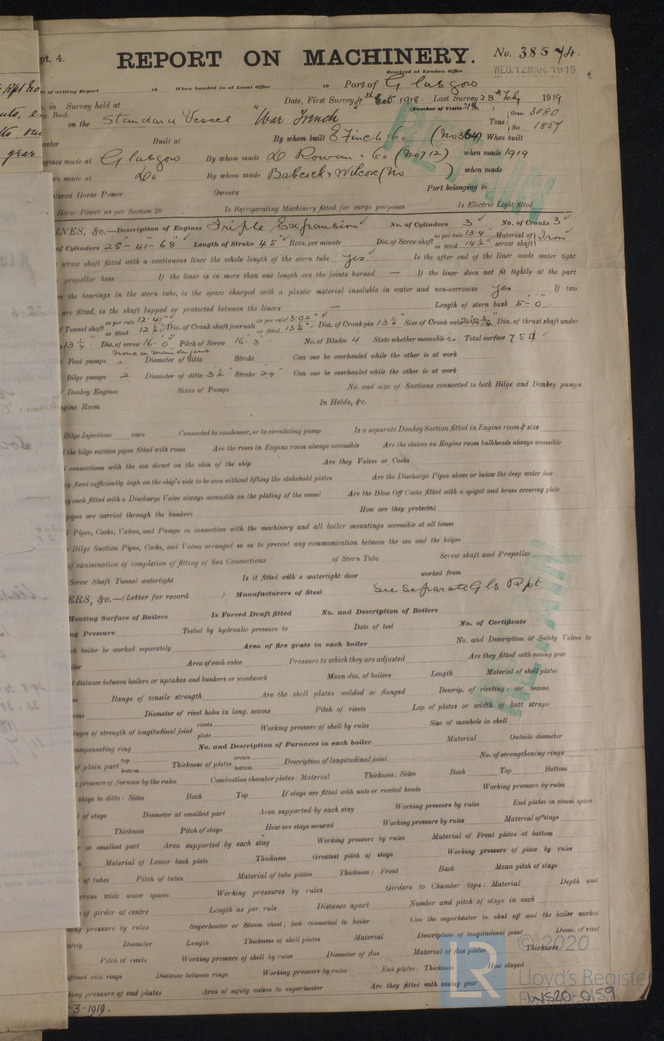 pt. 4.
REPORT ON MACHINERY.
No. 38574
Received at London Office
WED. 12 MAR 1919
of writing Report 19 When handed in at Local Office 19 Port of Glasgow
in Survey held at Date, First Survey 4th Oct 1918 Last Survey 28th Feby 1919
Book. (Number of Visits
on the Standard Vessel "War Trench" Tons Gross 3080 Net 1857
Built at By whom built E Finch & Co When built
made at Glasgow By whom made D Rowan & Co (No 712) when made 1919
made at Do By whom made Babcock & Wilcox (No ) when made
Horse Power Owners Port belonging to
Horse Power as per Section 28 Is Refrigerating Machinery fitted for cargo purposes Is Electric Light fitted
NES, &c.—Description of Engines Triple Expansion No. of Cylinders 3 No. of Cranks 3
of Cylinders 25-41-68 Length of Stroke 45" Revs. per minute Dia. of Screw shaft as per rule 13.4 as fitted 14½ Material of screw shaft Iron
screw shaft fitted with a continuous liner the whole length of the stern tube yes Is the after end of the liner made water tight
propeller boss If the liner is in more than one length are the joints burned — If the liner does not fit tightly at the part
the bearings in the stern tube, is the space charged with a plastic material insoluble in water and non-corrosive yes If two
are fitted, is the shaft lapped or protected between the liners — Length of stern bush 5-0"
Tunnel shaft as per rule 12.41" as fitted Dia. of Crank shaft journals as per rule 13.02" as fitted 13½" Dia. of Crank pin Size of Crank webs Dia. of thrust shaft under
13½" Dia. of screw 16-0" Pitch of Screw 16-3" No. of Blades 4 State whether moveable no Total surface 75
none on main engine
Feed pumps Diameter of ditto Stroke Can one be overhauled while the other is at work
Bilge pumps 2 Diameter of ditto 3½" Stroke 24" Can one be overhauled while the other is at work
Donkey Engines Sizes of Pumps No. and size of Suctions connected to both Bilge and Donkey pumps
gine Room In Holds, &c.
Bilge Injections sizes Connected to condenser, or to circulating pump Is a separate Donkey Suction fitted in Engine room & size
the bilge suction pipes fitted with roses Are the roses in Engine room always accessible Are the sluices on Engine room bulkheads always accessible
connections with the sea direct on the skin of the ship Are they Valves or Cocks
fixed sufficiently high on the ship's side to be seen without lifting the stokehold plates Are the Discharge Pipes above or below the deep water line
each fitted with a Discharge Valve always accessible on the plating of the vessel Are the Blow Off Cocks fitted with a spigot and brass covering plate
pipes are carried through the bunkers How are they protected
Pipes, Cocks, Valves, and Pumps in connection with the machinery and all boiler mountings accessible at all times
Bilge Suction Pipes, Cocks, and Valves arranged so as to prevent any communication between the sea and the bilges
of examination of completion of fitting of Sea Connections of Stern Tube Screw shaft and Propeller
Screw Shaft Tunnel watertight Is it fitted with a watertight door worked from
ERS, &c.—(Letter for record ) Manufacturers of Steel See Separate Gls Rpt
Heating Surface of Boilers Is Forced Draft fitted No. and Description of Boilers
ng Pressure Tested by hydraulic pressure to Date of test No. of Certificate
boiler be worked separately Area of fire grate in each boiler No. and Description of Safety Valves to
iler Area of each valve Pressure to which they are adjusted Are they fitted with easing gear
distance between boilers or uptakes and bunkers or woodwork Mean dia. of boilers Length Material of shell plates
Range of tensile strength Are the shell plates welded or flanged Descrip. of riveting: cir. seams
ms Diameter of rivet holes in long. seams Pitch of rivets Lap of plates or width of butt straps
ages of strength of longitudinal joint rivets plate Working pressure of shell by rules Size of manhole in shell
ompensating ring No. and Description of Furnaces in each boiler Material Outside diameter
of plain part top bottom Thickness of plates crown bottom Description of longitudinal joint No. of strengthening rings
pressure of furnace by the rules Combustion chamber plates: Material Thickness: Sides Back Top Bottom
stays to ditto: Sides Back Top If stays are fitted with nuts or riveted heads Working pressure by rules
of stays Diameter at smallest part Area supported by each stay Working pressure by rules End plates in steam space
Thickness Pitch of stays How are stays secured Working pressure by rules Material of stays
at smallest part Area supported by each stay Working pressure by rules Material of Front plates at bottom
Material of Lower back plate Thickness Greatest pitch of stays Working pressure of plate by rules
of tubes Pitch of tubes Material of tube plates Thickness: Front Back Mean pitch of stays
cross wide water spaces Working pressures by rules Girders to Chamber tops: Material Depth and
of girder at centre Length as per rule Distance apart Number and pitch of stays in each
ing pressure by rules Superheater or Steam chest; how connected to boiler Can the superheater be shut off and the boiler worked
ately Diameter Length Thickness of shell plates Material Description of longitudinal joint Diam. of rivet
Pitch of rivets Working pressure of shell by rules Diameter of flue Material of flue plates Thickness
ffened with rings Distance between rings Working pressure by rules End plates: Thickness How stayed
king pressure of end plates Area of safety valves to superheater Are they fitted with easing gear
-3-1919.
© 2020
LR
Lloyd's Register
WS20-0159